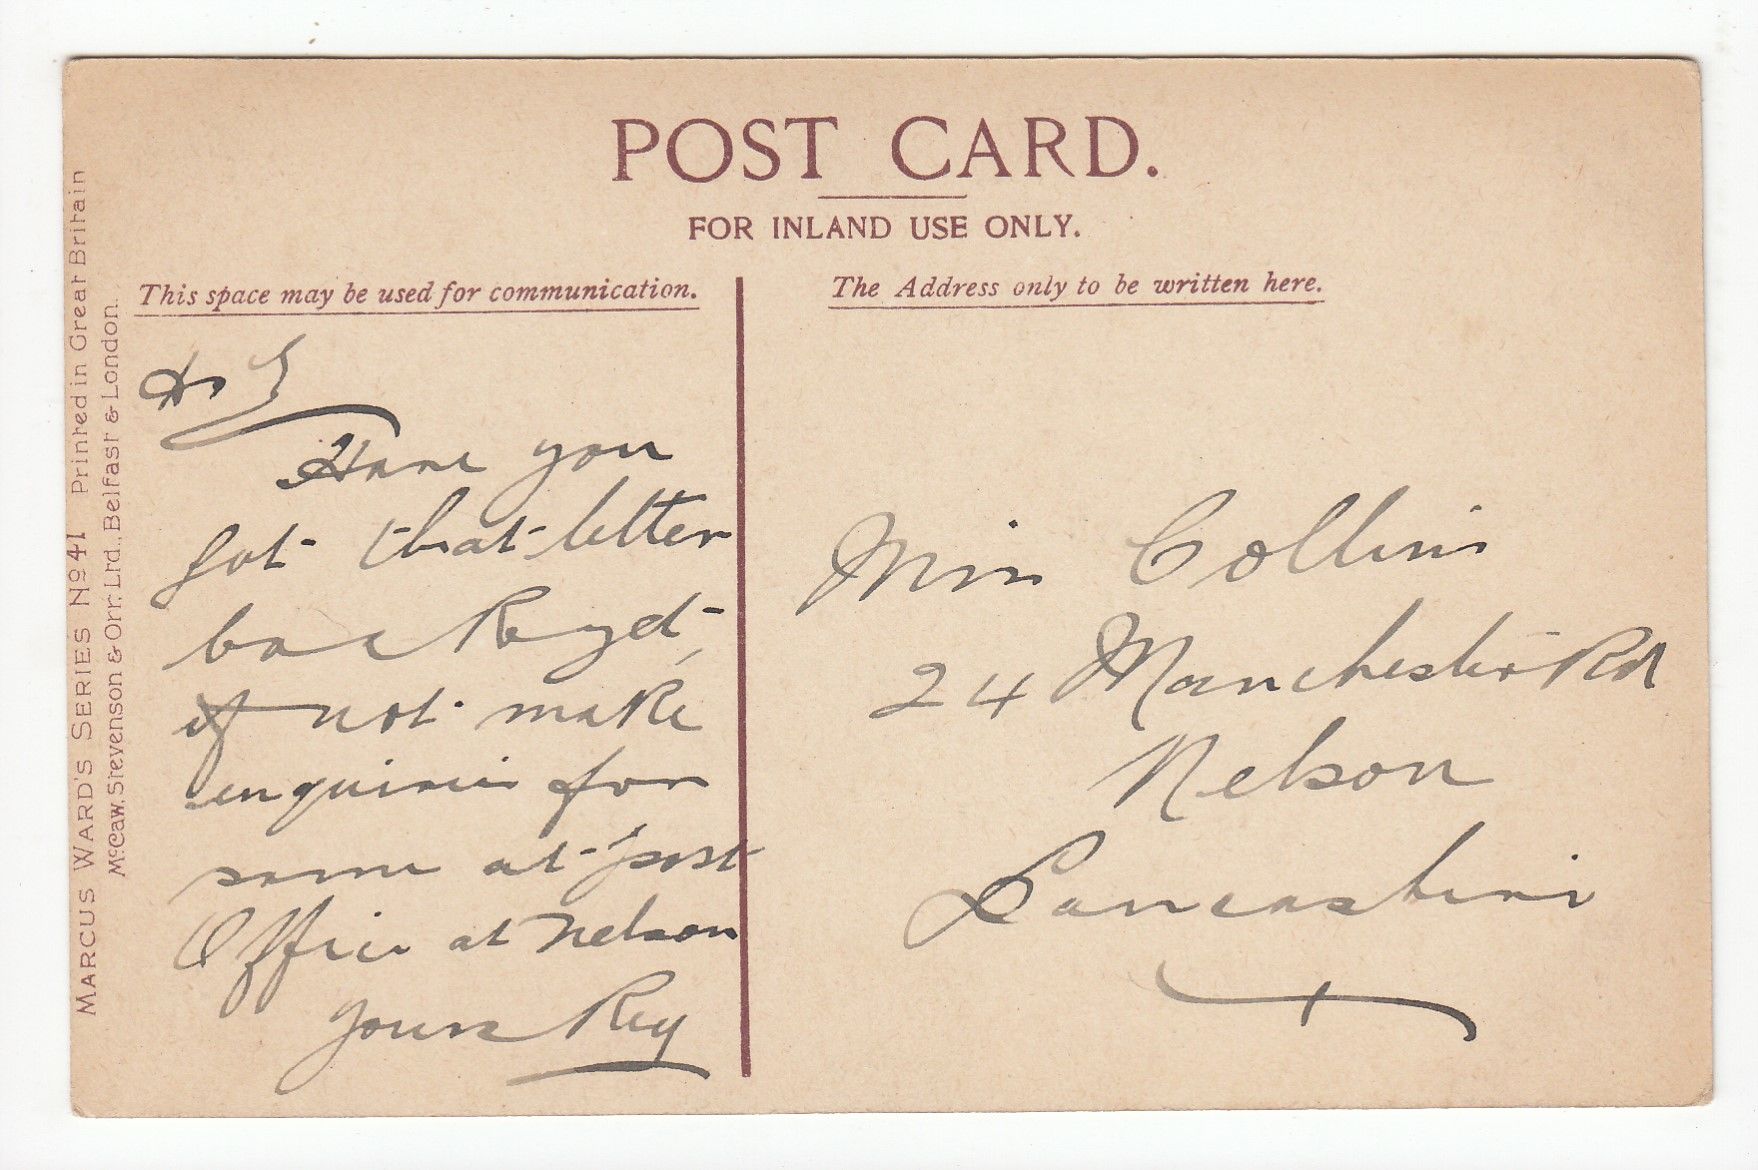 POST CARD.
FOR INLAND USE ONLY.
This space may be used for communication.
The Address only to be written here.
MARCUS WARD'S SERIES No 41 Printed in Great Britain
McCaw, Stevenson & Orr. Ltd., Belfast & London.
Have you
got that letter
back yet,
if not make
enquiries for
same at post
Office at Nelson
Yours Reg
Miss Collins
24 Manchester Rd
Nelson
Lancashire